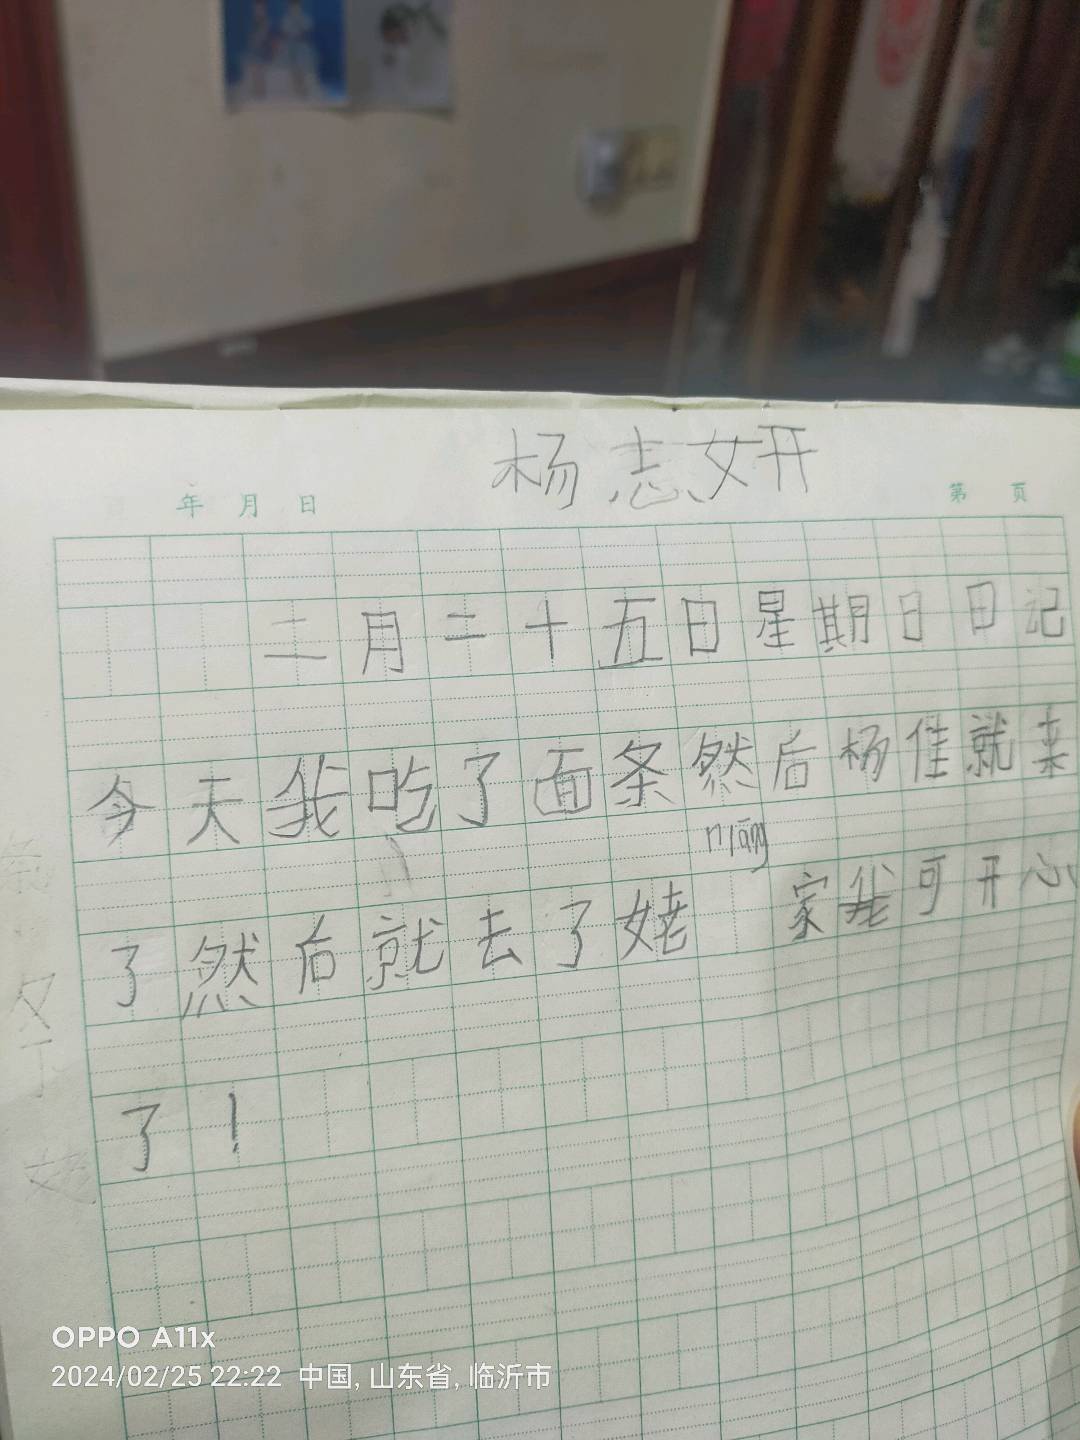 杨志妍
年 月 日
第 页
二月二十五日星期日日记
今天我吃了面条然后杨佳就来
niáng
了然后就去了姥 家我可开心
了！
OPPO A11x
2024/02/25 22:22 中国, 山东省, 临沂市